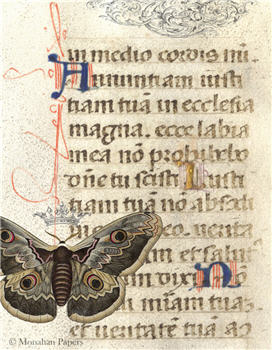 in medio cordis mī.
Anuntiam iusti
tiam tuā in ecclesia
magna. ecce labia
mea nō prohibebo
dñe tu scisti Iusti
tiam tuam nō
et
dixi N
miam tuā
et veritatē tuā
© Monahan Papers